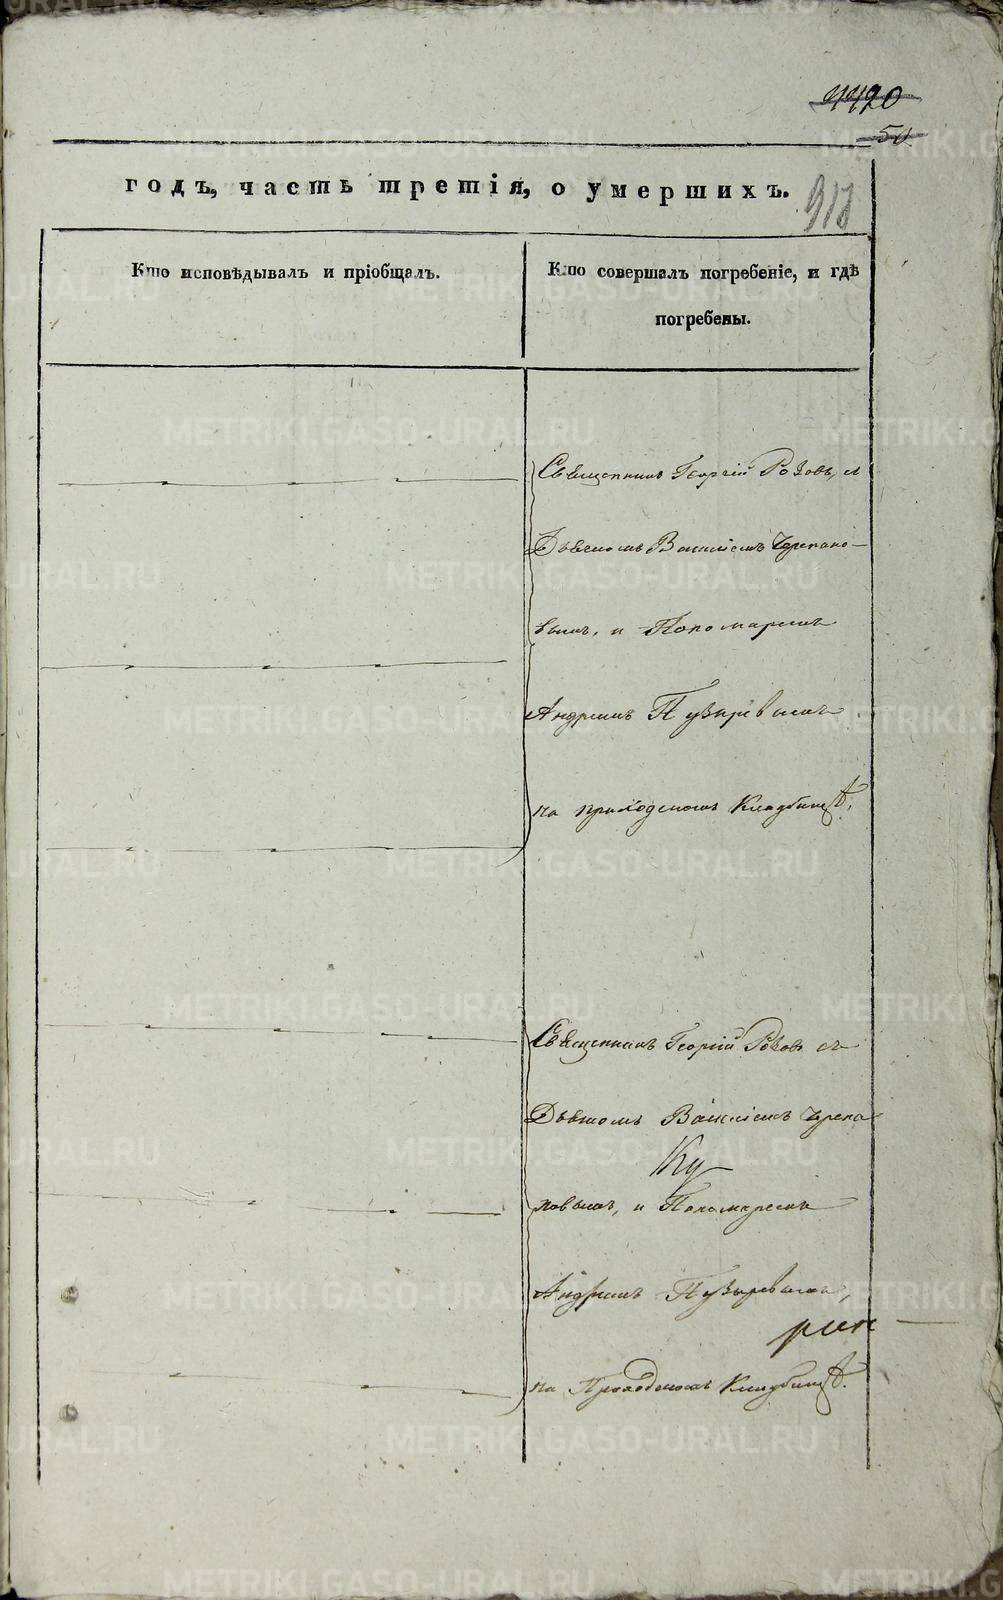 4420
50
годъ, часть третія, о умершихъ.
Кто исповѣдывалъ и пріобщалъ.
Кто совершалъ погребеніе, и гдѣ
погребены.
Священникъ Георгій Розовъ, съ
Дьячкомъ Василіемъ Черпако-
вымъ, и Пономаремъ
Андреемъ Пузыревымъ
на приходскомъ Кладбищѣ.
Священникъ Георгій Розовъ съ
Василіемъ
и Пономаремъ
Андреемъ Пузыревымъ,
на Приходскомъ Кладбищѣ.
METRIKI.GASO-URAL.RU